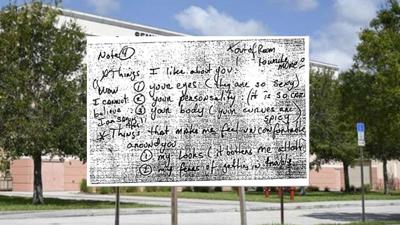 Note ④ out of Room
* Things I like about you:
(Wow ① your eyes (they are so sexy)
I cannot ② your personality (it is so
believe ③ your body (your curves are
I am spicy)
* Things that make me feel uncomfortable
around you
① my looks (it bothers me
② my fear of getting in trouble